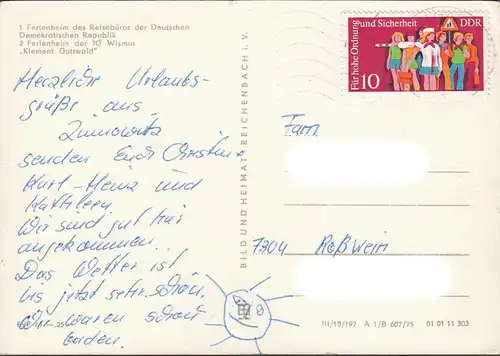 1 Ferienheim des Reisebüros der Deutschen
Demokratischen Republik
2 Ferienheim der IG Wismut
„Klement Gottwald"
Herzliche Urlaubs-
grüße aus
Zinnowitz
senden Euch Christine
Karl-Heinz und
Kathleen
Wir sind gut hier
angekommen.
Das Wetter ist
bis jetzt sehr schön,
wir waren schon
baden.
BILD UND HEIMAT REICHENBACH I. V.
Für hohe Ordnung und Sicherheit
DDR
10
Fam
7304 Roßwein
III/18/197 A 1/B 607/75 01 01 11 303